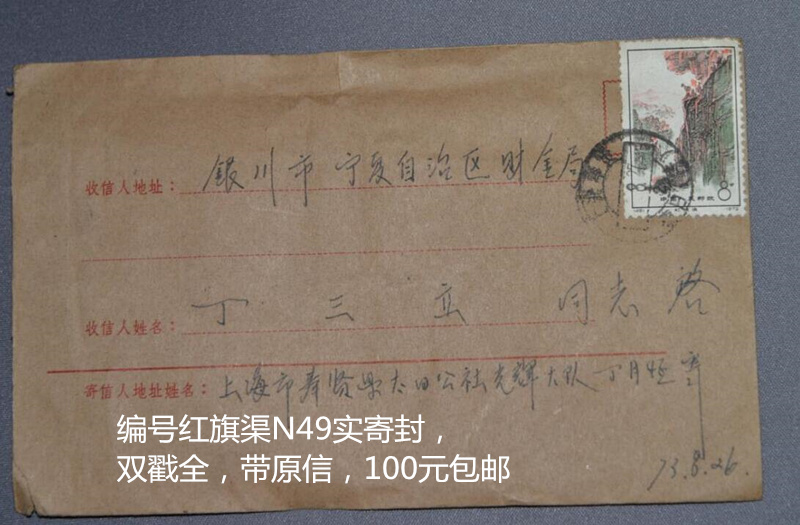 收信人地址：银川市 宁夏自治区财金局
8
收信人姓名：丁三立 同志 启
寄信人地址姓名：上海市奉贤县太日公社光辉大队 丁月恒 寄
编号红旗渠N49实寄封，
双戳全，带原信，100元包邮
73.8.26.